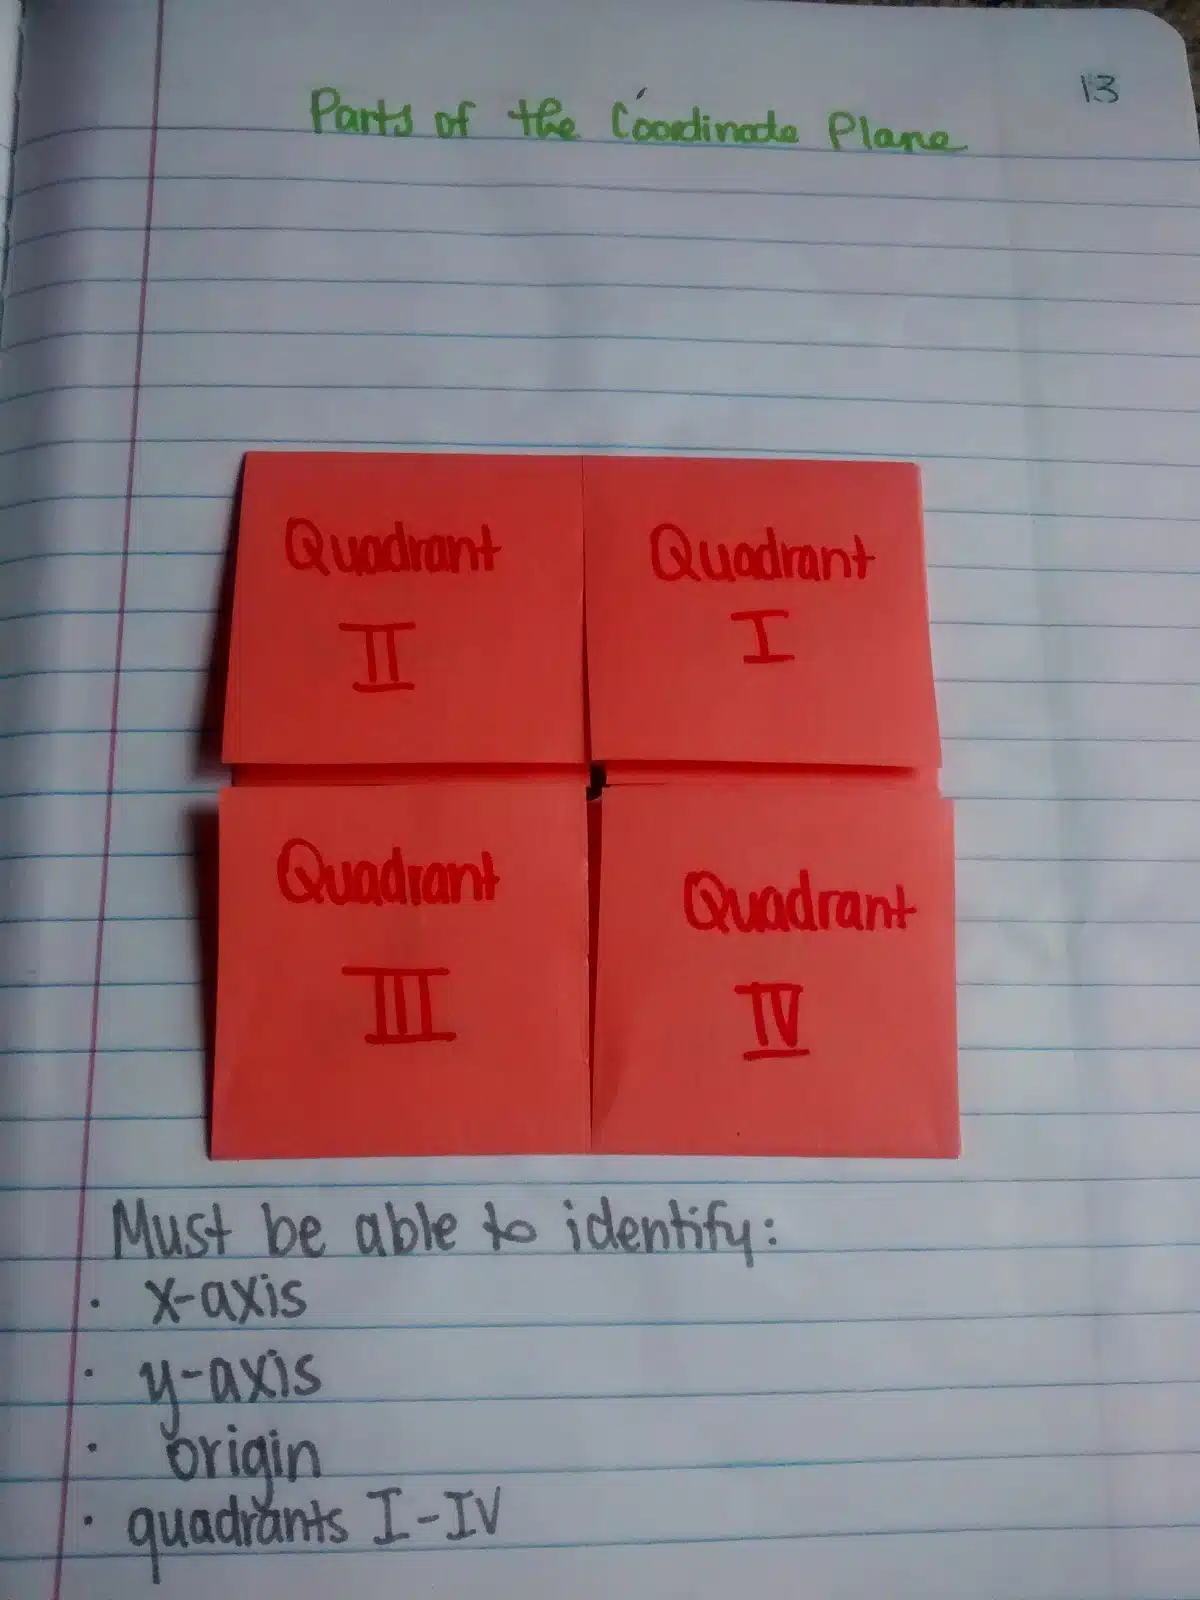 13
Parts of the Coordinate Plane
Quadrant
II
Quadrant
I
Quadrant
III
Quadrant
IV
Must be able to identify:
· x-axis
· y-axis
· origin
· quadrants I-IV